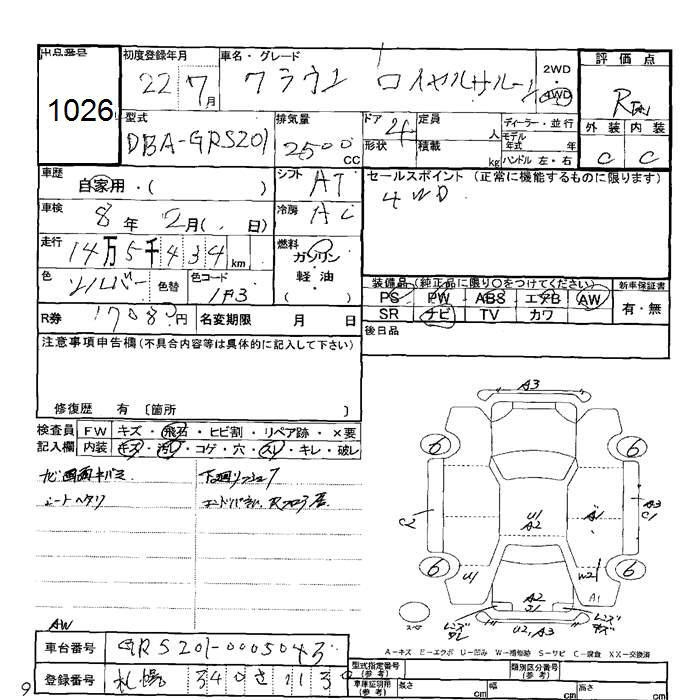 出品番号
1026
初度登録年月
22年7月
車名・グレード
クラウン ロイヤルサルーン
2WD
4WD
評価点
外装 内装
C C
型式
DBA-GRS201
排気量
2500cc
ドア 4
形状
定員 人
積載 kg
ディーラー・並行
モデル年式 年
ハンドル 左・右
車歴
自家用・( )
シフト AT
セールスポイント (正常に機能するものに限ります)
4WD
車検
8年2月( . 日)
冷房 AC
走行
14万5千434km
燃料
ガソリン・軽油・( )
色
シルバー
色替
色コード
1F3
装備品(純正品に限り〇をつけてください)
新車保証書
PS PW ABS エアB AW
有・無
SR ナビ TV カワ
R券 17080円
名変期限 月 日
後日品
注意事項申告欄(不具合内容等は具体的に記入して下さい)
修復歴 有 〔箇所 〕
検査員記入欄
FW キズ・飛石・ヒビ割・リペア跡・×要
内装 キズ・汚レ・コゲ・穴・スレ・キレ・破レ
ナビ画面キバミ
シートヘタリ
A3
6 6
C2
U1
A2
A1
A3
C1
6 6
U1
W2
A1
A2
U2, A3
スペア
レンズ
レンズ
キズ
A-キズ E-エクボ U-凹み W-補修跡 S-サビ C-腐食 XX-交換済
AW
車台番号 GRS201-0005043
登録番号 札幌 340 さ 113
型式指定番号(参考)
類別区分番号(参考)
車庫証明用(参考)
長さ cm
幅 cm
高さ cm
9